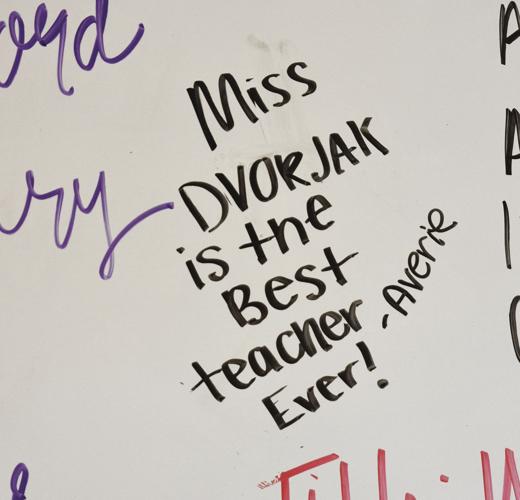 Miss
DVORJAK
is the
Best
teacher
Ever!
-Averie